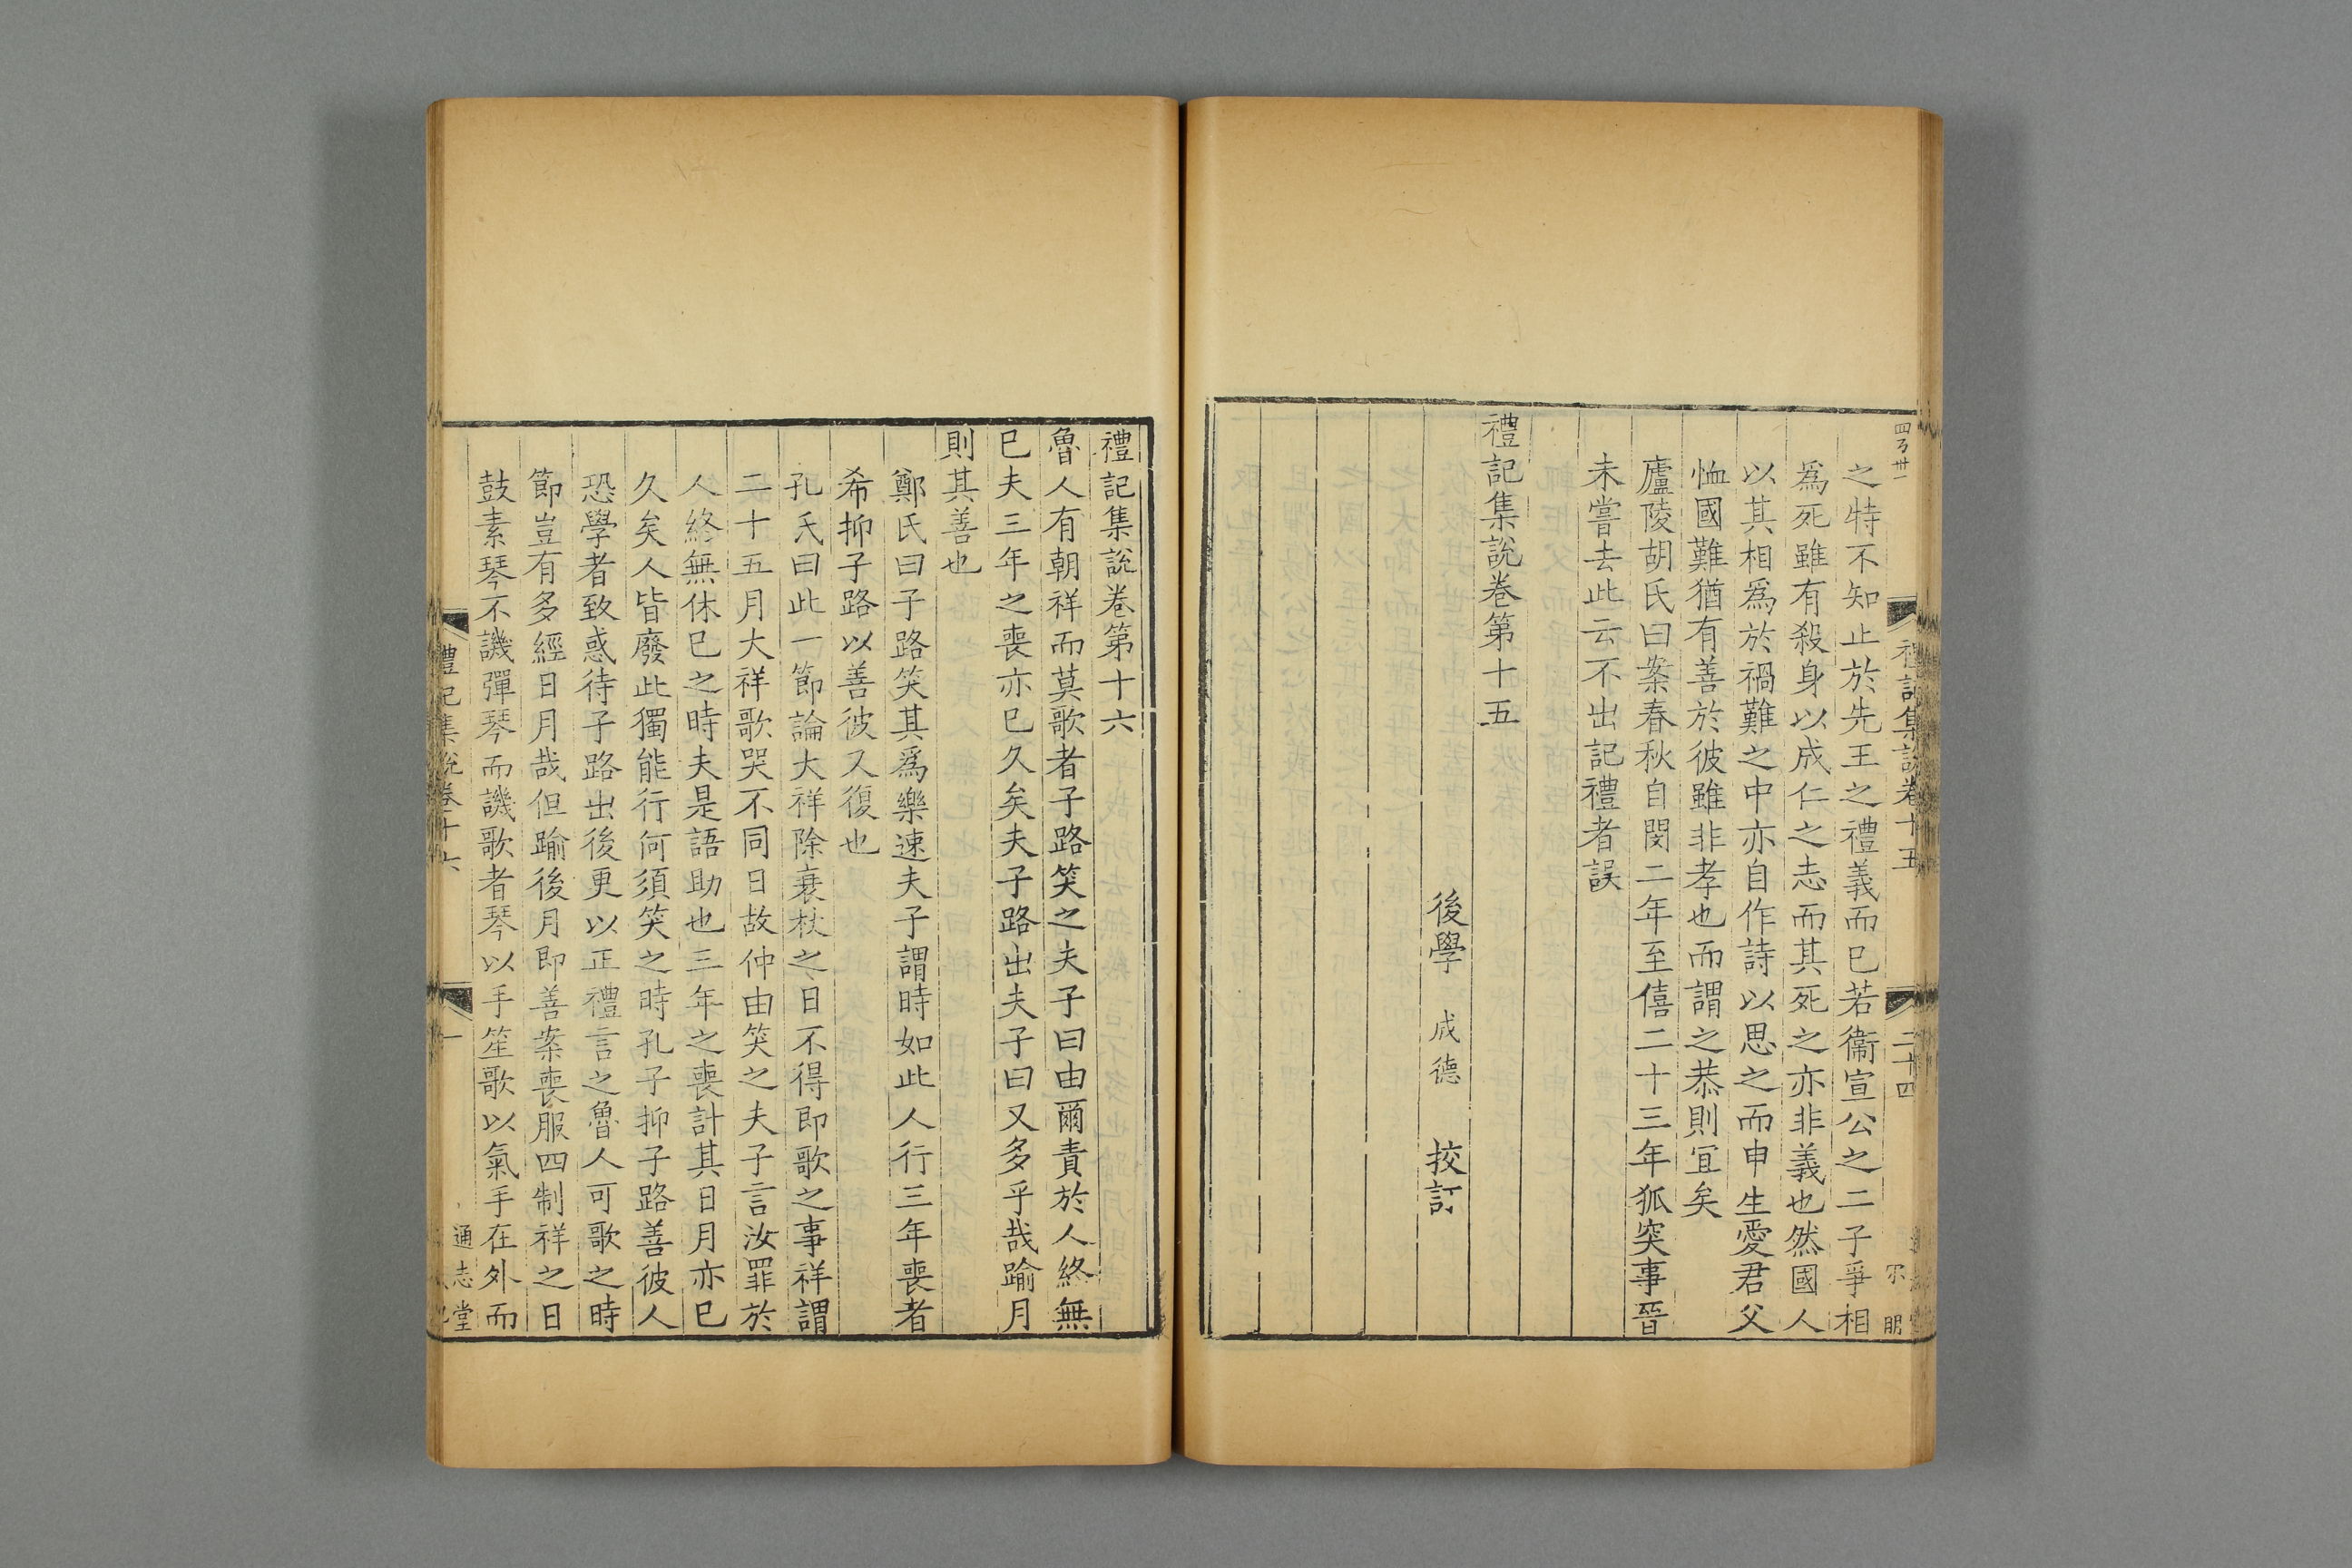 四百卅一
禮記集說卷十五
二十四
明
之特不知止於先王之禮義而已若衞宣公之二子爭相
爲死雖有殺身以成仁之志而其死之亦非義也然國人
以其相爲於禍難之中亦自作詩以思之而申生愛君父
恤國難猶有善於彼雖非孝也而謂之恭則宜矣
廬陵胡氏曰案春秋自閔二年至僖二十三年狐突事晉
未嘗去此云不出記禮者誤
禮記集說卷第十五
後學 成德 挍訂
禮記集說卷第十六
魯人有朝祥而莫歌者子路笑之夫子曰由爾責於人終無
已夫三年之喪亦已久矣夫子路出夫子曰又多乎哉踰月
則其善也
鄭氏曰子路笑其爲樂速夫子謂時如此人行三年喪者
希抑子路以善彼又復也
孔氏曰此一節論大祥除衰杖之日不得即歌之事祥謂
二十五月大祥歌哭不同日故仲由笑之夫子言汝罪於
人終無休已之時夫是語助也三年之喪計其日月亦已
久矣人皆廢此獨能行何須笑之時孔子抑子路善彼人
恐學者致惑待子路出後更以正禮言之魯人可歌之時
節豈有多經日月哉但踰後月即善案喪服四制祥之日
鼓素琴不譏彈琴而譏歌者琴以手笙歌以氣手在外而
禮記集說卷十六
一
通志堂